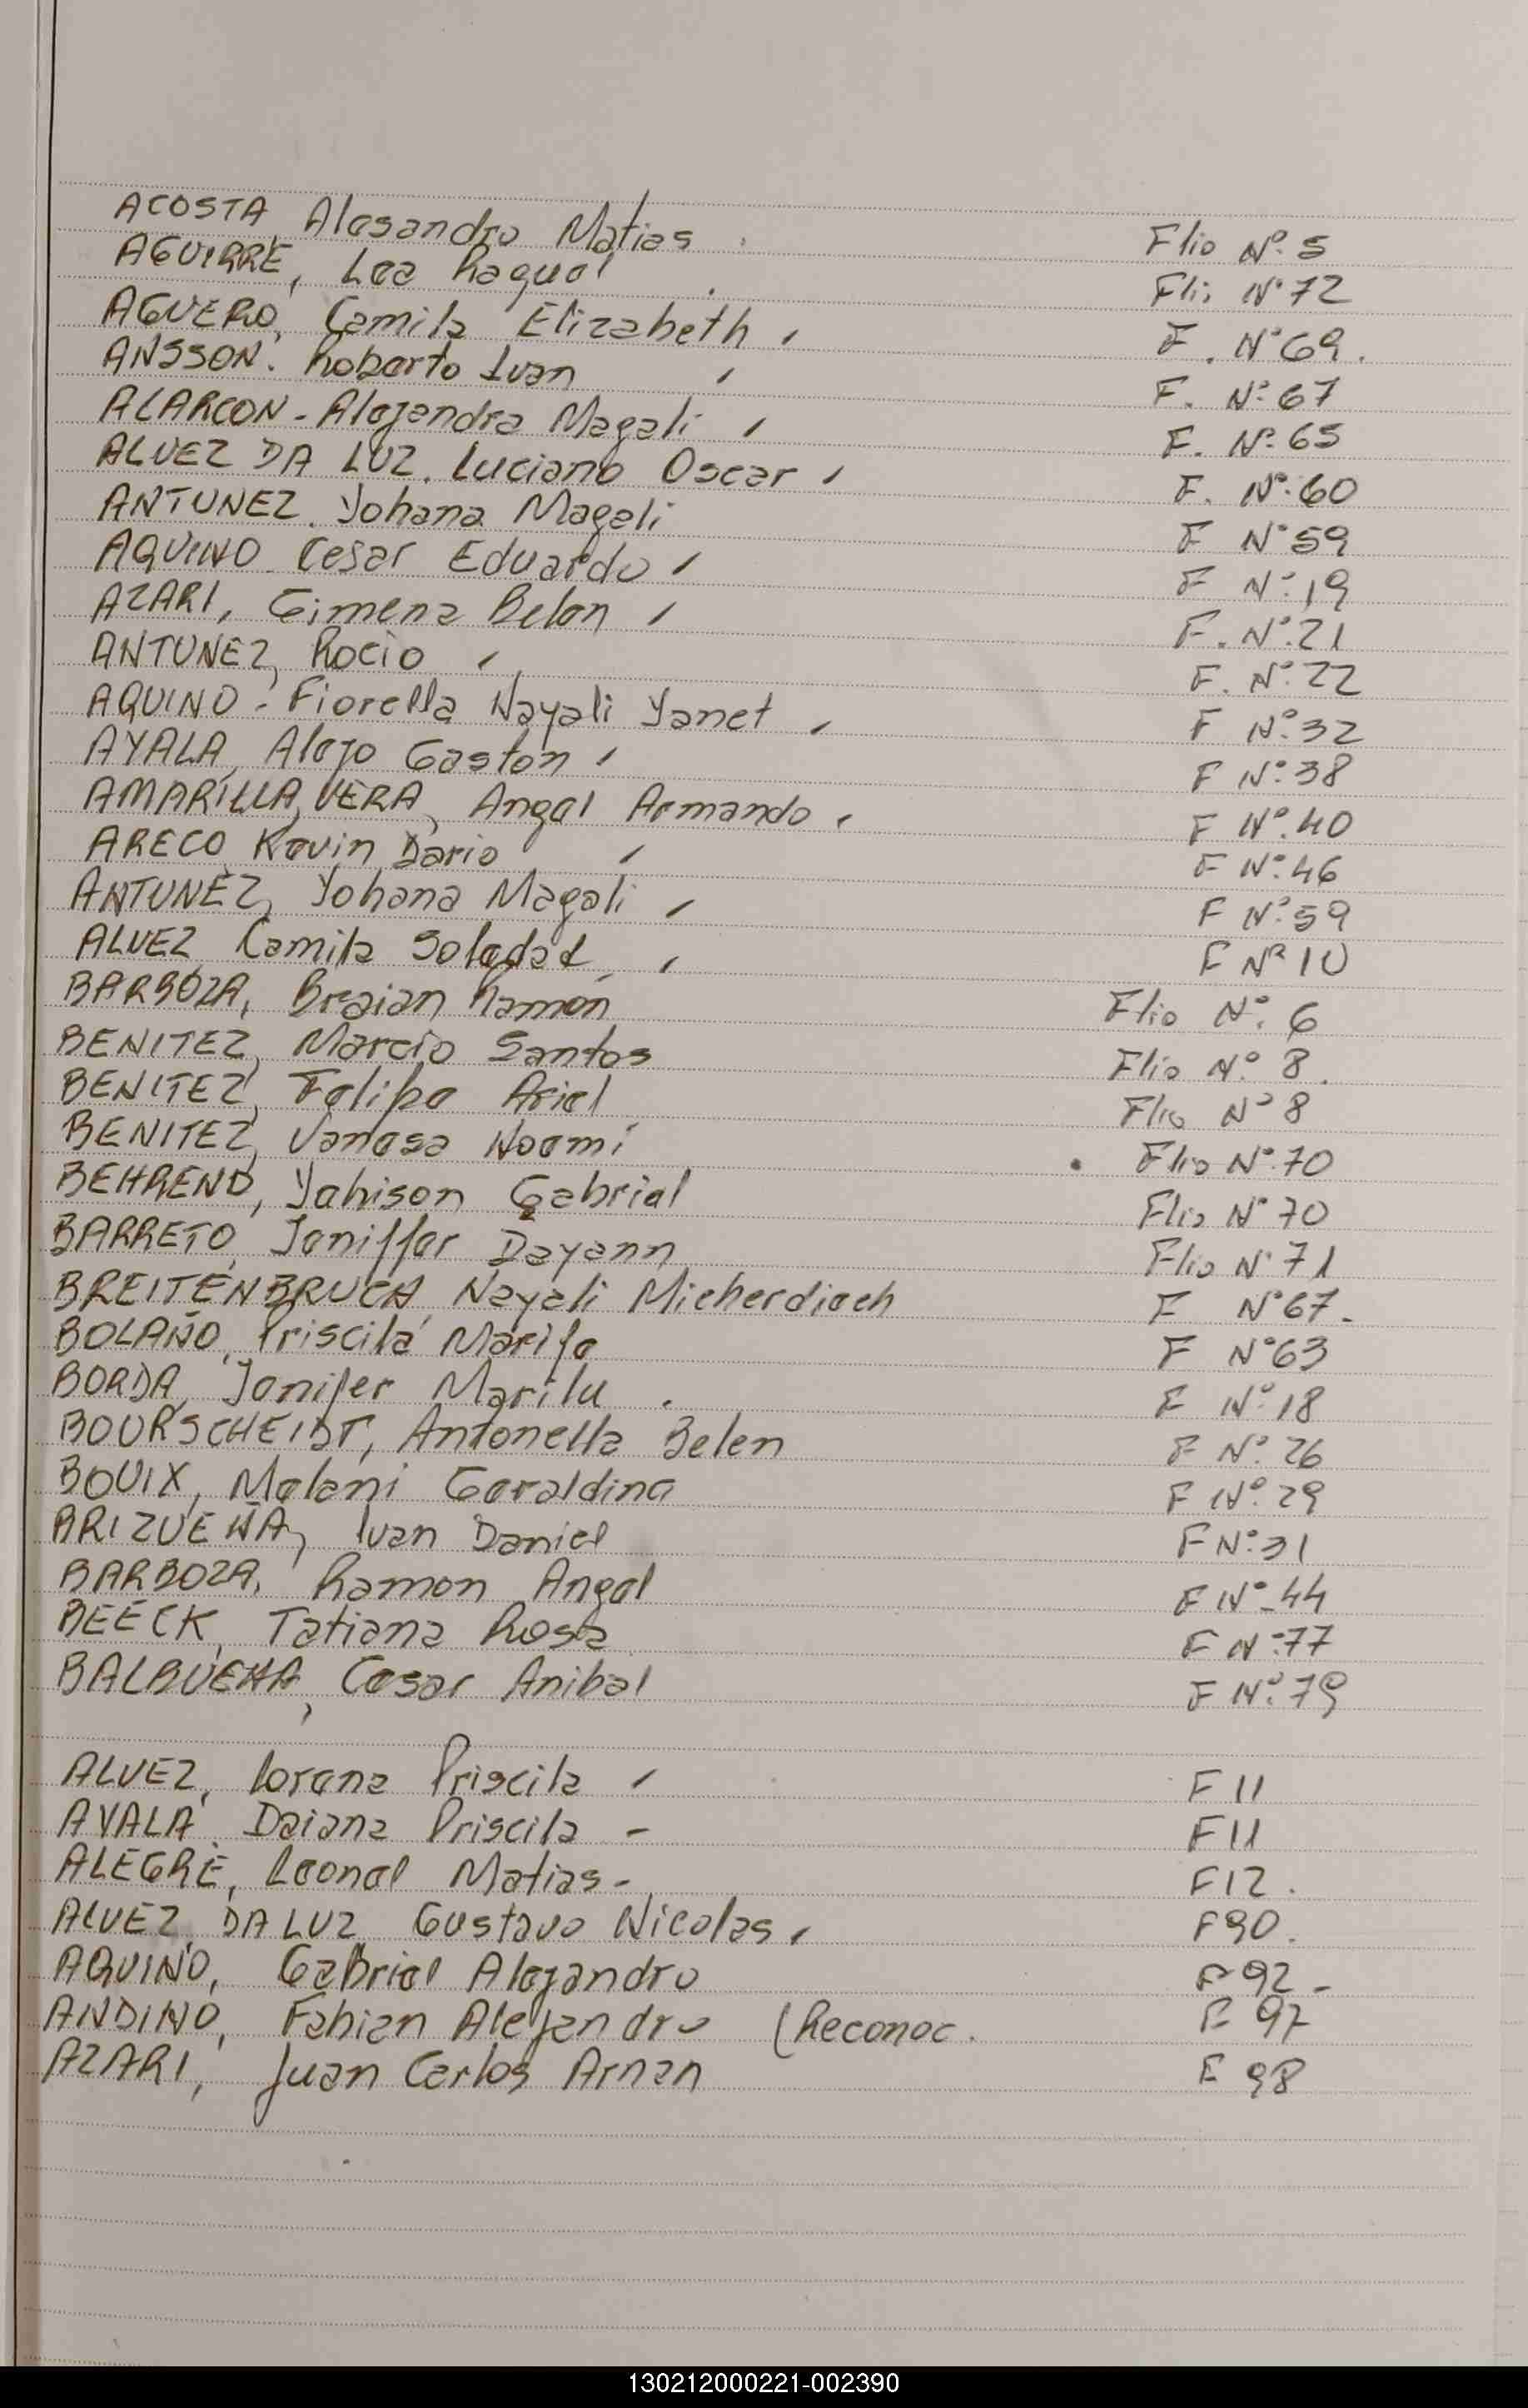 ACOSTA, Alesandro Matias. Flio Nº. 5
AGUIRRE, Lea Raquel. Fli; Nº 72
AGUERO, Camila Elizabeth, F. Nº 69.
ANSSON. Roberto Ivan F. Nº 67
ALARCON - Alejandra Magali F. Nº 65
ALVEZ DA LUZ. Luciano Oscar F. Nº. 60
ANTUNEZ. Yohana Magali F Nº 59
AQUINO Cesar Eduardo F Nº 19
AZARI, Gimena Belen F. Nº. 21
ANTUNEZ, Rocio F. Nº. 22
AQUINO - Fiorella Nayali Yanet F Nº. 32
AYALA, Alejo Gaston F Nº. 38
AMARILLA VERA, Angel Armando F Nº. 40
ARECO Kevin Dario F Nº. 46
ANTUNEZ, Yohana Magali F Nº. 59
ALVEZ Camila Soledad F Nº 10
BARBOZA, Braian Ramon Flio Nº. 6
BENITEZ, Marcio Santos Flio Nº. 8.
BENITEZ, Felipe Ariel Flio Nº 8
BENITEZ, Vanesa Noemi Flio Nº. 70
BEHREND, Yahison Gabriel Flio Nº 70
BARRETO, Jeniffer Dayann Flio Nº 71
BREITENBRUCH Nayeli Micherdiach F Nº 67.
BOLAÑO, Priscila Marife F Nº 63
BORDA, Jenifer Marilu. F Nº. 18
BOURSCHEIDT, Antonella Belen F Nº. 26
BOUIX, Melani Geraldina F Nº. 29
BRIZUEÑA, Ivan Daniel F Nº. 31
BARBOZA, Ramon Angel F Nº 44
BEECK, Tatiana Rosa F Nº 77
BALBUENA, Cesar Anibal F Nº. 79
ALVEZ, Lorena Priscila F 11
AYALA Daiana Priscila - F 11
ALEGRE, Leonel Matias - F 12.
ALVEZ DA LUZ Gustavo Nicolas, F 90.
AQUINO, Gabriel Alejandro F 92 -
ANDINO, Fabian Alejandro (Reconoc. F 97
AZARI, Juan Carlos Arnan F 98
130212000221-002390